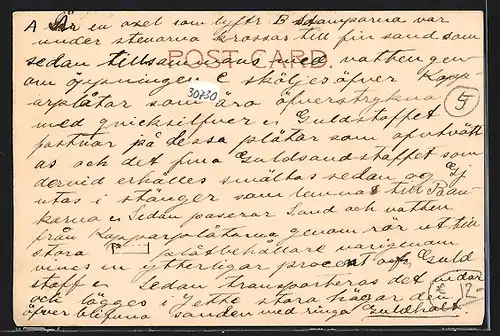 A Är en axel som lyftr B Stamparna var
under stenarna krossas till fin sand som
POST CARD.
sedan tillsammans med vatten gen
om öppningen C sköljes öfver Kopp
30730
arplåtar som äro öfverstrykna
5
med quicksilfver o Guldstoffet
fastnar på dessa plåtar som aftvätt
as och det fina Guldsandstoffet som
dervid erhålles smältas sedan og Gj
utas i stänger som lemnas till Ban
kerna o Sedan paserar Sand och vatten
från Kopparplåtarna genom rör ut till
stora plåtbehållare varigenom
vines en ytterligar procent af Guld
stoff o Sedan transporteras det undan
och lägges i Jette stora högar den
öfver blifvna sanden med ringa Guldhalt.
12-